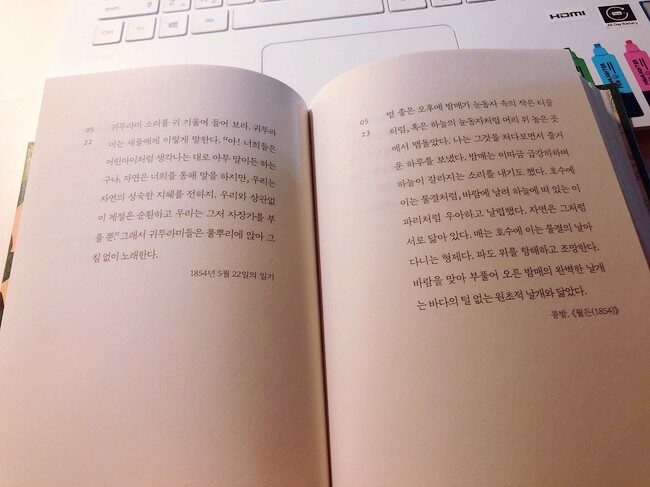 HDMI
05
22
귀뚜라미 소리를 귀 기울여 들어 보라. 귀뚜라
미는 새들에게 이렇게 말한다. “아! 너희들은
어린아이처럼 생각나는 대로 아무 말이든 하는
구나. 자연은 너희를 통해 말을 하지만, 우리는
자연의 성숙한 지혜를 전하지. 우리와 상관없
이 계절은 순환하고 우리는 그저 자장가를 부
를 뿐.” 그래서 귀뚜라미들은 풀뿌리에 앉아 그
침 없이 노래한다.
1854년 5월 22일의 일기
05
23
볕 좋은 오후에 밤매가 눈동자 속의 작은 티끌
처럼, 혹은 하늘의 눈동자처럼 머리 위 높은 곳
에서 맴돌았다. 나는 그것을 쳐다보면서 즐거
운 하루를 보냈다. 밤매는 이따금 급강하하며
하늘이 갈라지는 소리를 내기도 했다. 호수에
이는 물결처럼, 바람에 날려 하늘에 떠 있는 이
파리처럼 우아하고 날렵했다. 자연은 그처럼
서로 닮아 있다. 매는 호수에 이는 물결의 날아
다니는 형제다. 파도 위를 항해하고 조망한다.
바람을 맞아 부풀어 오른 밤매의 완벽한 날개
는 바다의 털 없는 원초적 날개와 닮았다.
콩밭, 《월든(1854)》